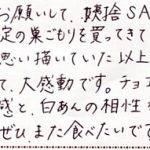 お願いして、姨捨SA
定の巣ごもりを買ってきて
思い描いていた以上
て、大感動です。チョコ
感と、白あんの相性を
ぜひまた食べたいです